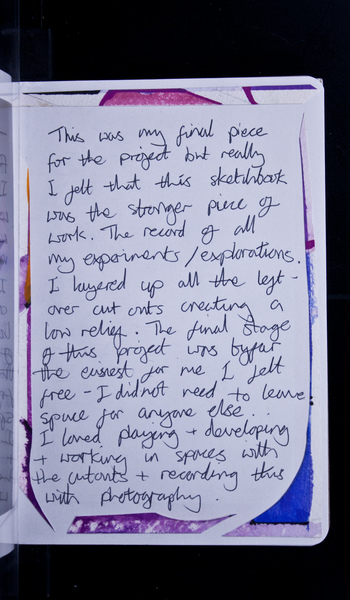 This was my final piece
for the project but really
I felt that this sketchbook
was the stronger piece of
work. The record of all
my experiments / explorations.
I layered up all the left-
over cut outs creating a
low relief. The final stage
of this project was byfar
the easiest for me I felt
free - I did not need to leave
space for anyone else..
I loved playing + developing
+ working in spaces with
the cutouts + recording this
with photography.